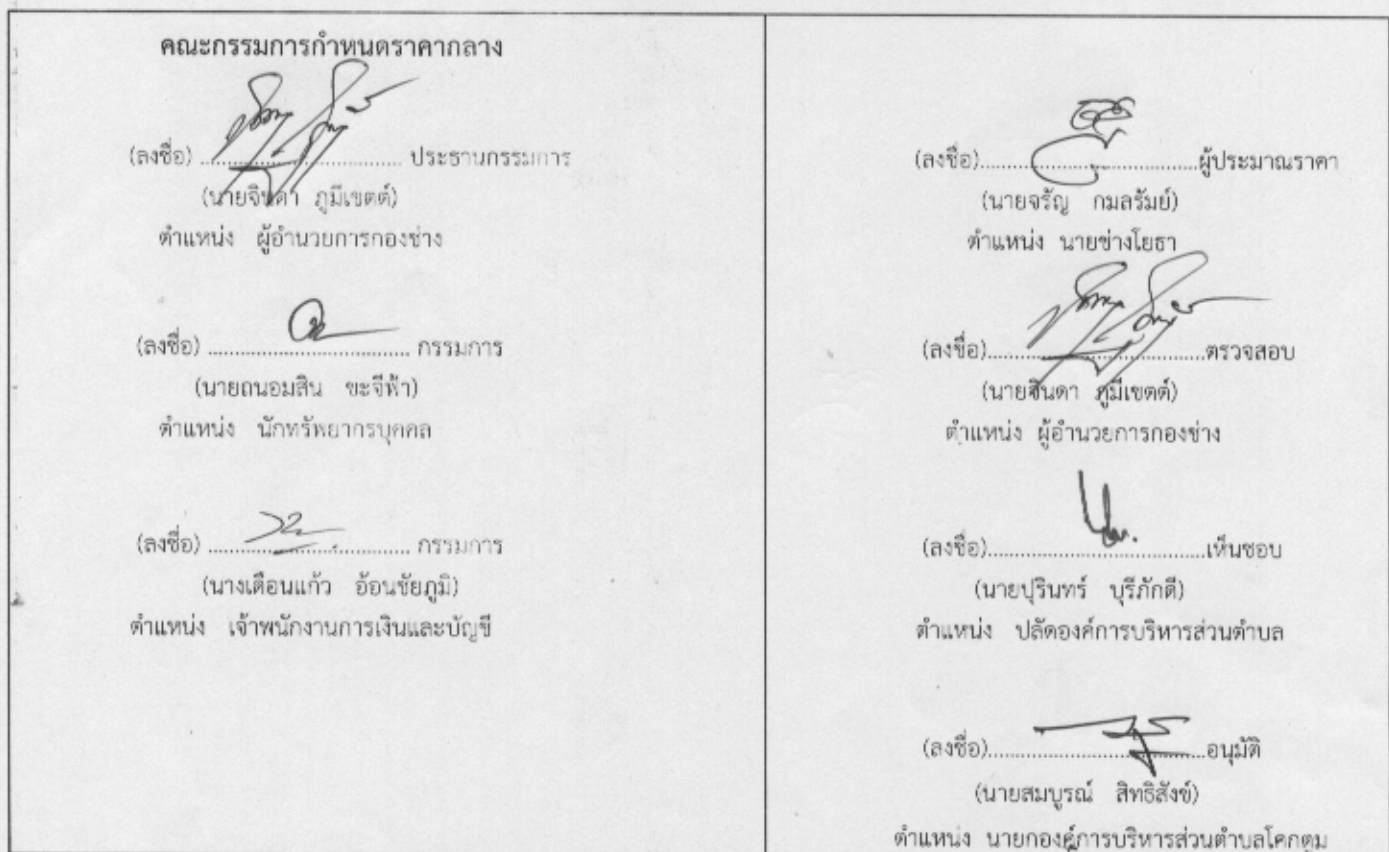 คณะกรรมการกำหนดราคากลาง
(ลงชื่อ) .................................. ประธานกรรมการ
(นายจินดา ภูมีเขตต์)
ตำแหน่ง ผู้อำนวยการกองช่าง
(ลงชื่อ) .................................. กรรมการ
(นายถนอมสิน ขะจีฟ้า)
ตำแหน่ง นักทรัพยากรบุคคล
(ลงชื่อ) .................................. กรรมการ
(นางเตือนแก้ว อ้อนชัยภูมิ)
ตำแหน่ง เจ้าพนักงานการเงินและบัญชี
(ลงชื่อ)....................................ผู้ประมาณราคา
(นายจรัญ กมลรัมย์)
ตำแหน่ง นายช่างโยธา
(ลงชื่อ)....................................ตรวจสอบ
(นายจินดา ภูมีเขตต์)
ตำแหน่ง ผู้อำนวยการกองช่าง
(ลงชื่อ)....................................เห็นชอบ
(นายปุรินทร์ บุรีภักดี)
ตำแหน่ง ปลัดองค์การบริหารส่วนตำบล
(ลงชื่อ)....................................อนุมัติ
(นายสมบูรณ์ สิทธิสังข์)
ตำแหน่ง นายกองค์การบริหารส่วนตำบลโคกตูม